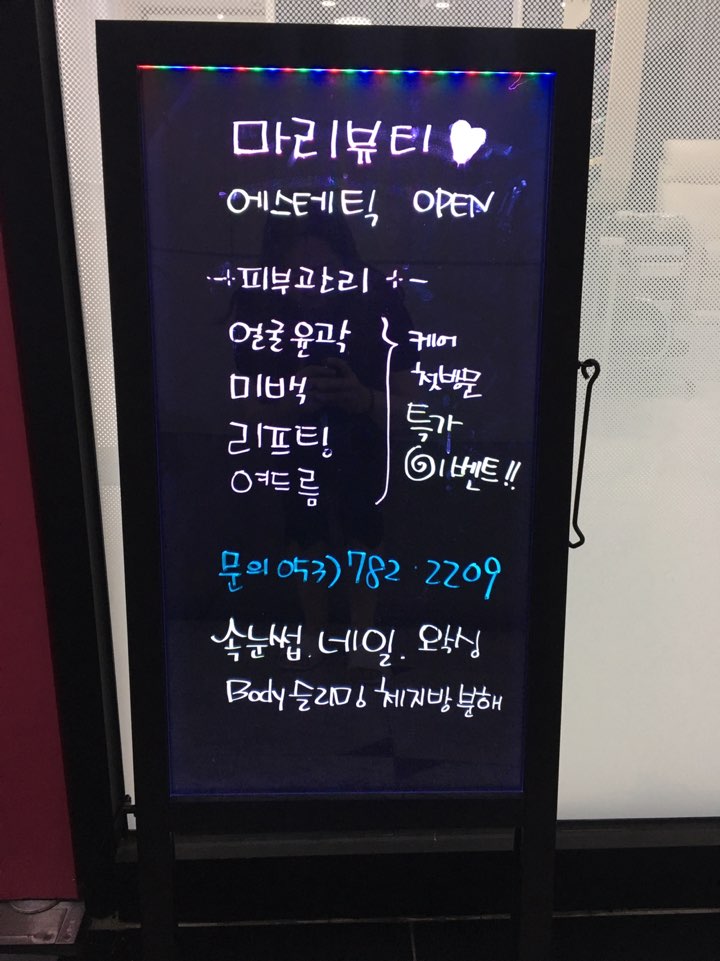 마리뷰티 ♥
에스테틱 OPEN
피부관리
얼굴윤곽
미백
리프팅
여드름
케어
첫방문
특가
이벤트!!
문의 053) 782. 2209
속눈썹. 네일. 왁싱
Body 슬리밍 체지방분해